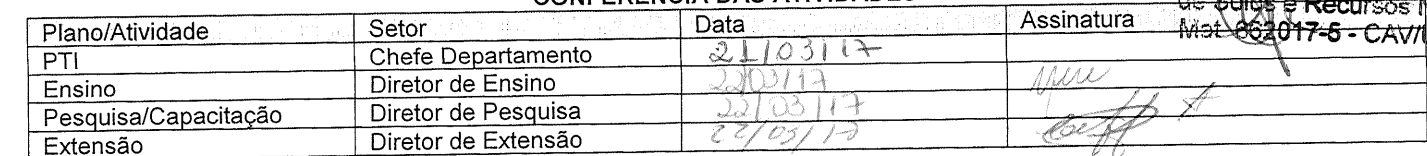 CONFERÊNCIA DAS ATIVIDADES
de Solos e Recursos N
Mat. 662017-5 - CAV/
Plano/Atividade Setor Data Assinatura
PTI Chefe Departamento 21/03/17
Ensino Diretor de Ensino 22/03/17
Pesquisa/Capacitação Diretor de Pesquisa 22/03/17
Extensão Diretor de Extensão 22/03/17